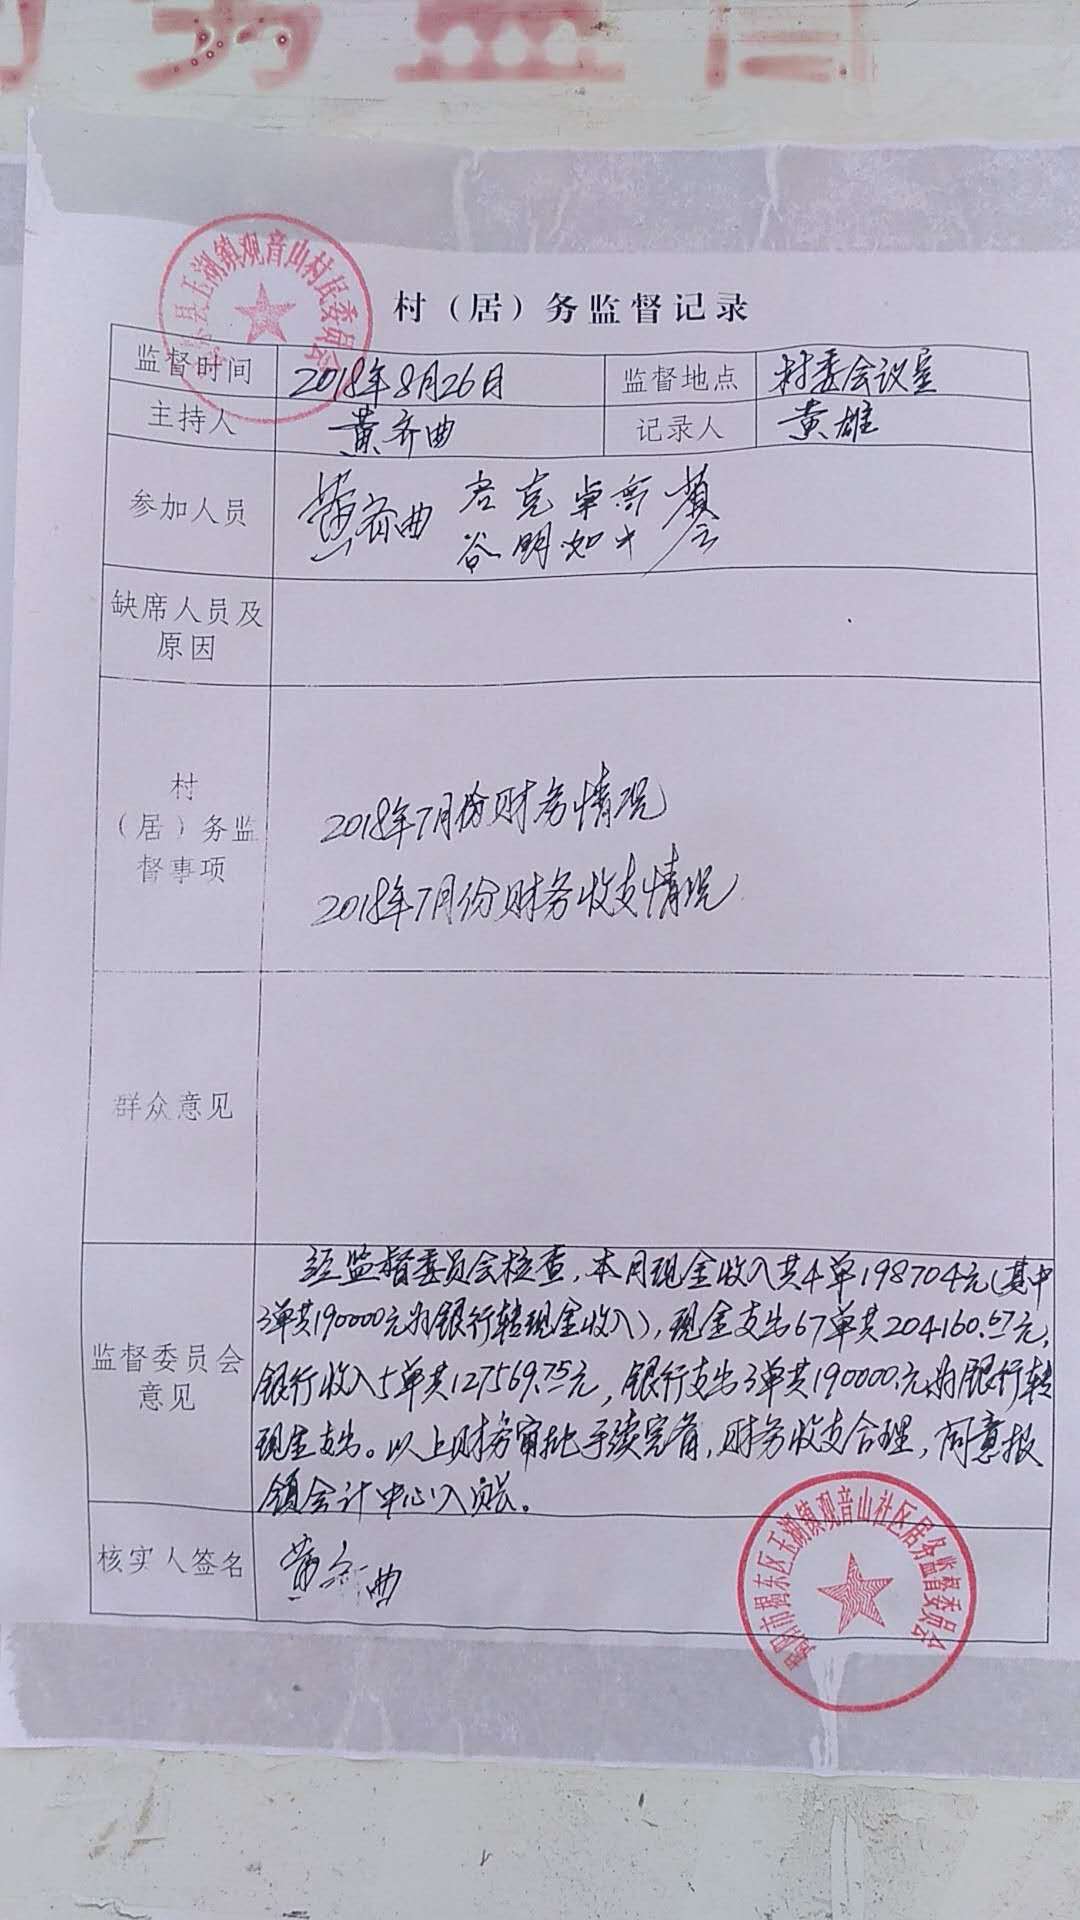 务监
县玉湖镇观音山村民委员会
村（居）务监督记录
监督时间 2018年8月26日 监督地点 村委会议室
主持人 黄齐曲 记录人 黄雄
参加人员 黄齐曲
缺席人员及
原因
村
（居）务监
督事项
2018年7月份财务情况
2018年7月份财务收支情况
群众意见
监督委员会
意见
经监督委员会检查，本月现金收入共4单198704元（其中
3单共190000元为银行转现金收入），现金支出67单共204160.67元，
银行收入5单共127569.75元，银行支出3单共190000.元为银行转
现金支出。以上财务审批手续完备，财务收支合理，同意报
镇会计中心入账。
核实人签名 黄齐曲
揭阳市揭东区玉湖镇观音山社区居务监督委员会